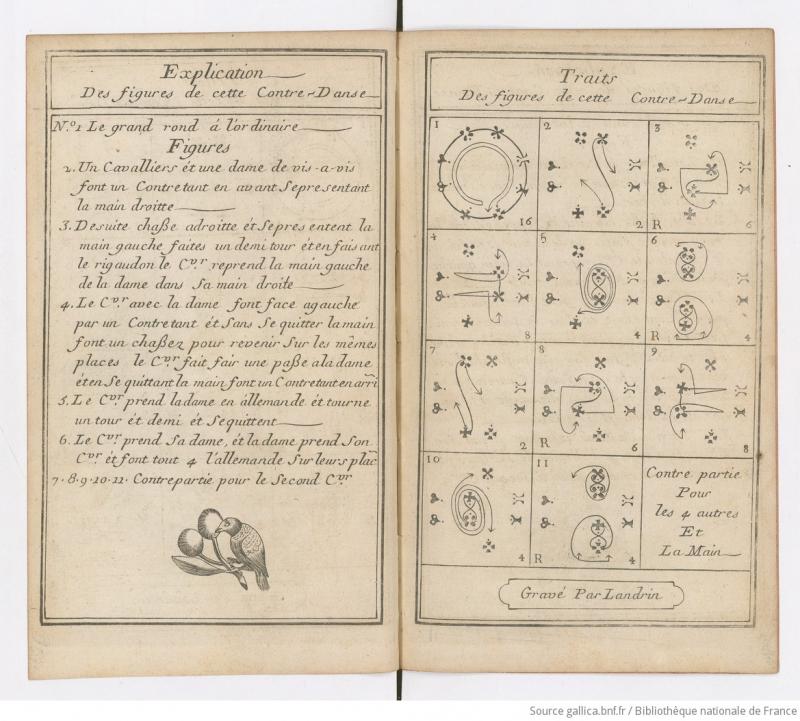 Explication
Des figures de cette Contre-Danse
N.º1 Le grand rond á l'ordinaire
Figures
2. Un Cavalliers ét une dame de vis-a-vis
font un Contretant en avant Sepresentant
la main droitte
3. Desuite chaße adroitte ét Sepres entent la
main gauche faites un demi tour ét en fais ant
le rigaudon le C.vr reprend la main gauche
de la dame dans Sa main droite
4. Le C.vr avec la dame font face agauche
par un Contretant ét Sans Se quitter la main
font un chaßez pour revenir Sur les mêmes
places le C.vr fait fair une paße ala dame
ét en Se quittant la main font un Contretant en arri
5. Le C.vr prend la dame en állemande ét tourne
un tour ét demi ét Sequittent
6. Le C.vr prend Sa dame, ét la dame prend Son
C.vr ét font tout 4 l'allemande Sur leurs plac
7. 8. 9. 10. 11. Contrepartie pour le Second C.vr
Traits
Des figures de cette Contre-Danse
1
16
2
2
3
R
6
4
8
5
4
6
R
4
7
2
8
R
6
9
8
10
4
11
R
4
Contre partie
Pour
les 4 autres
Et
La Main
Gravé Par Landrin
Source gallica.bnf.fr / Bibliothèque nationale de France